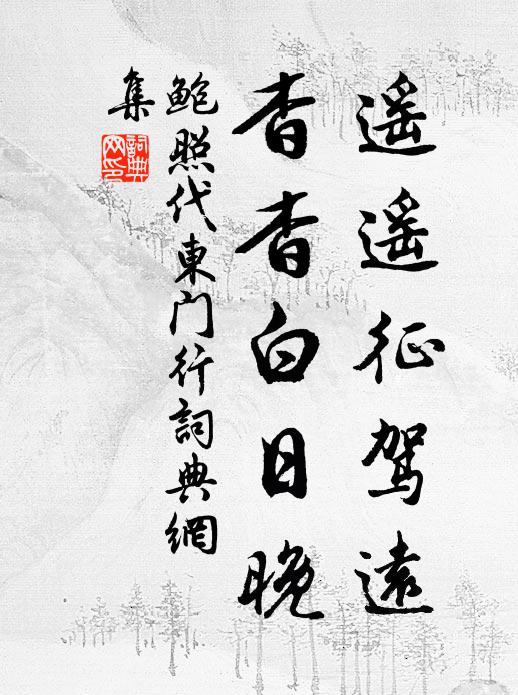 遥遥征駕遠
杳杳白日晚
鲍照代東门行詞典網
集
詞典
网印